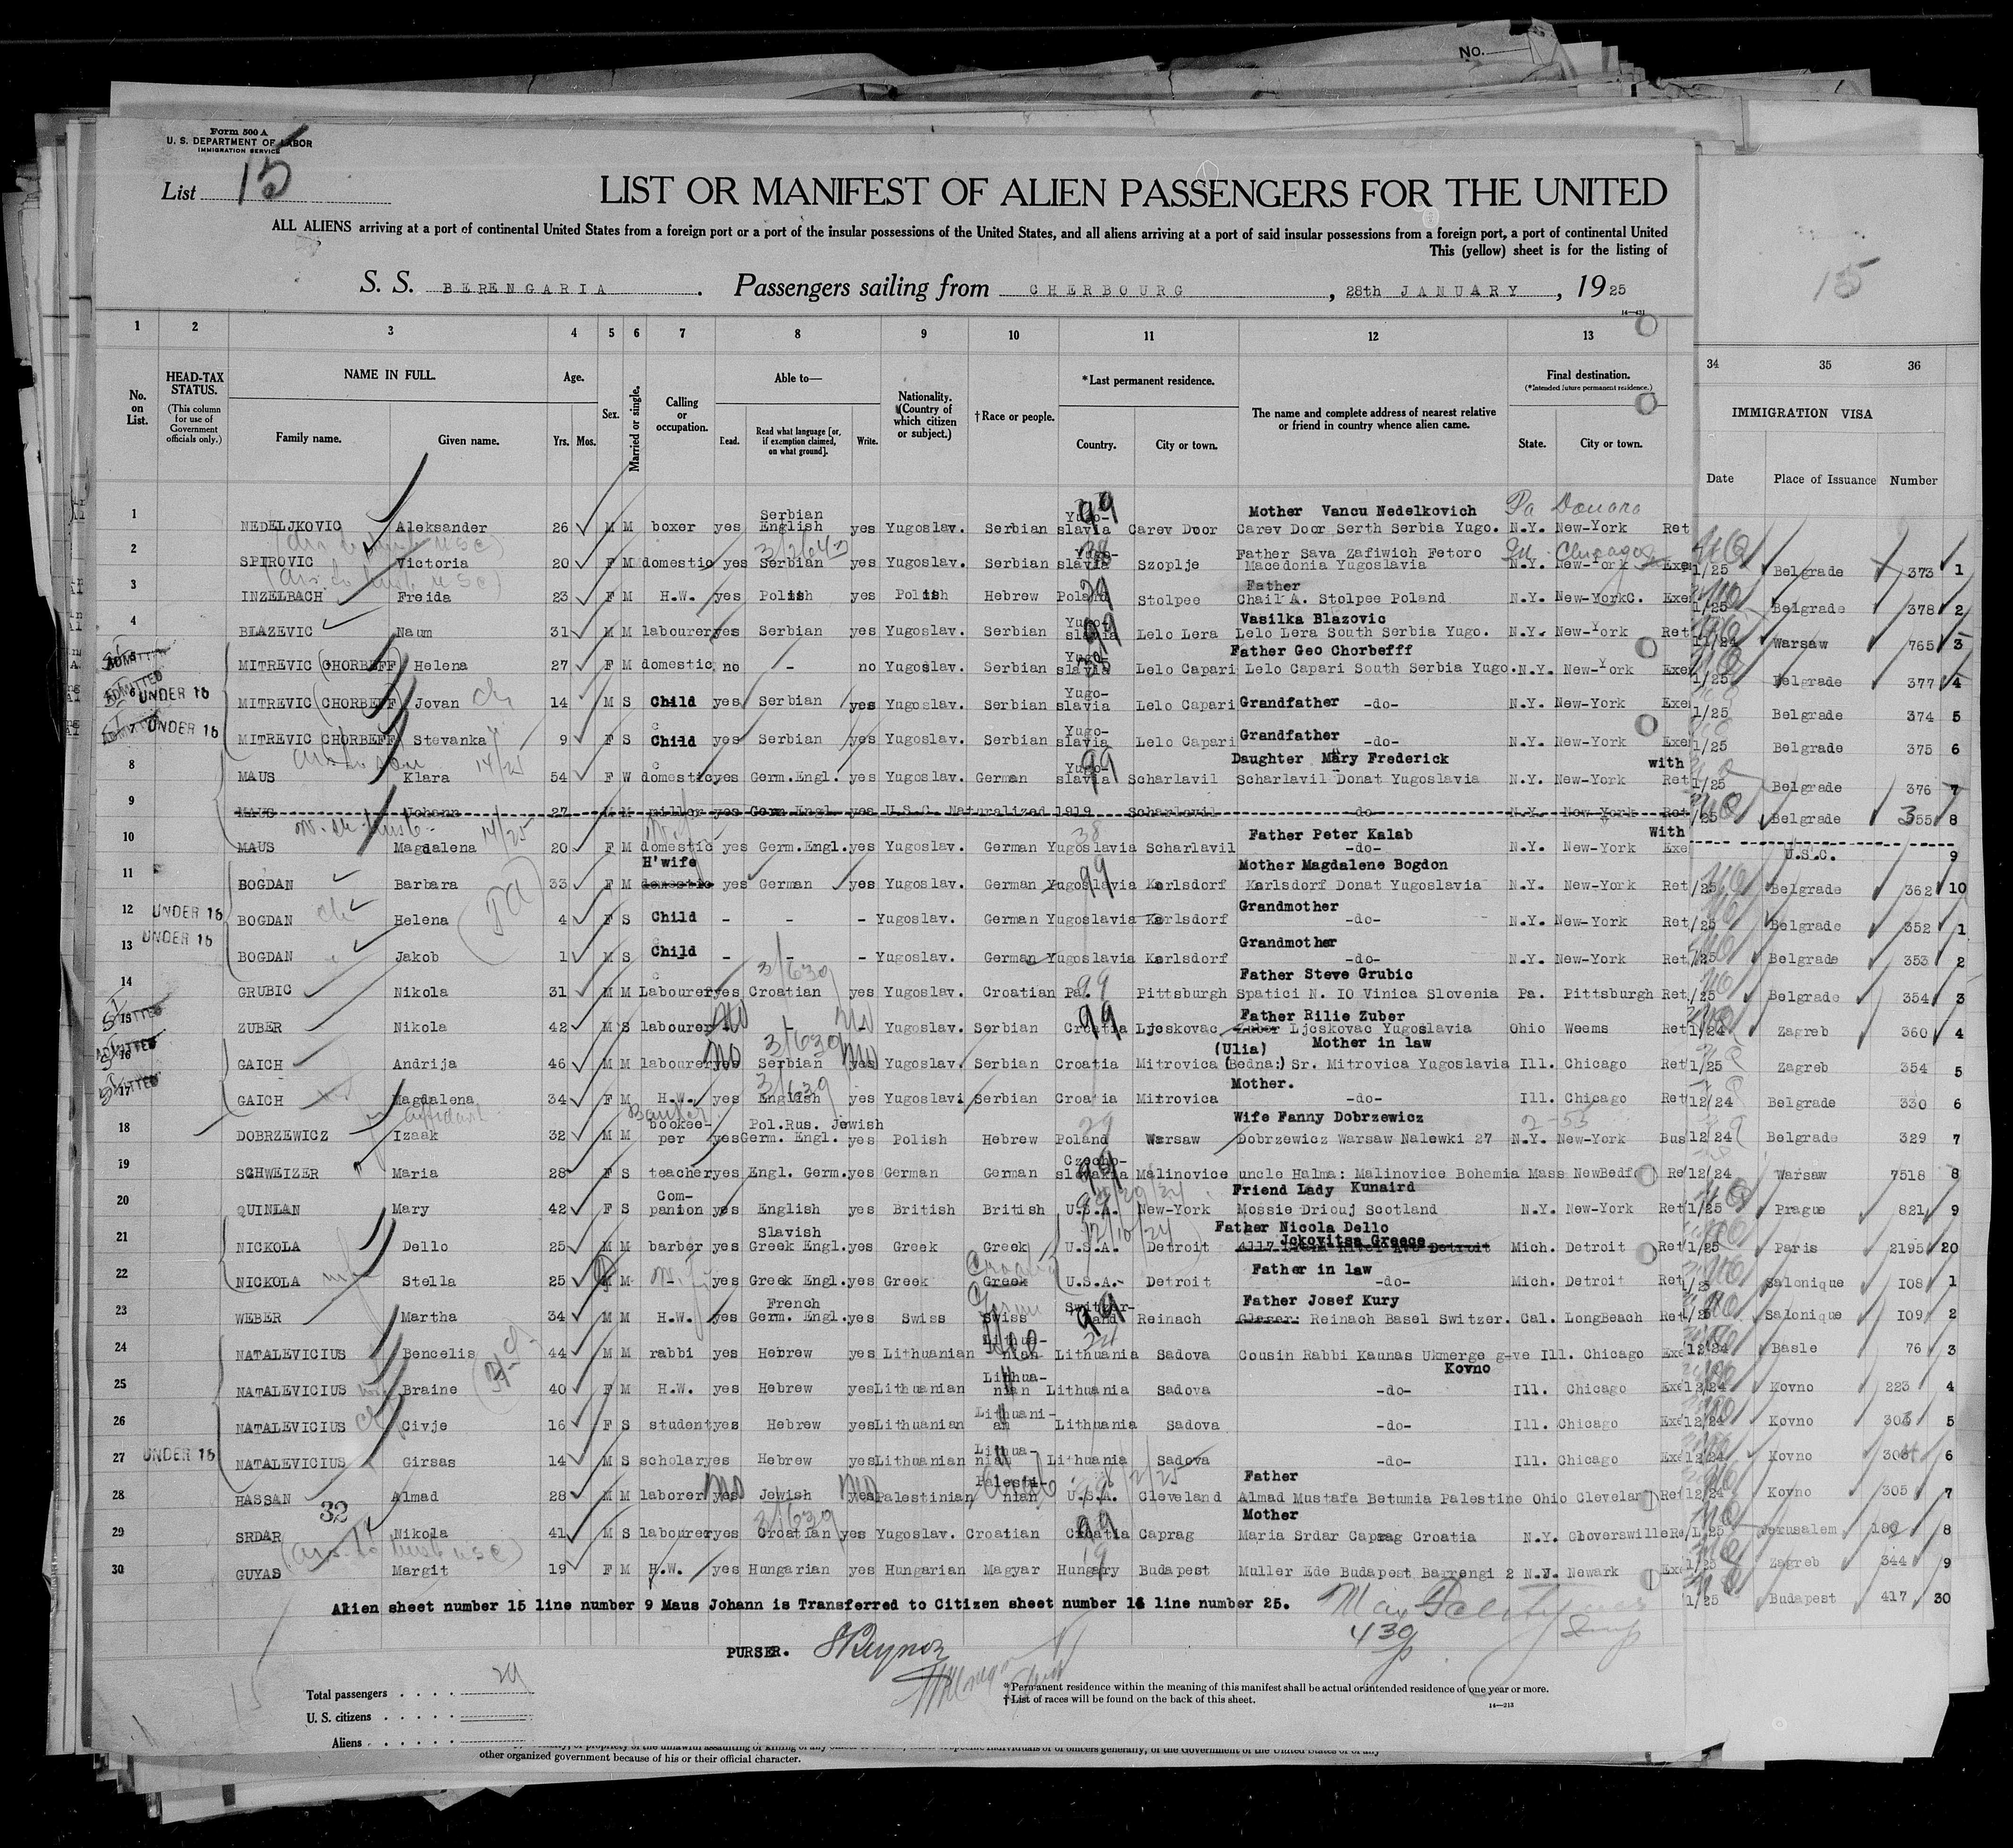 No.
Form 500 A
U. S. DEPARTMENT OF LABOR
IMMIGRATION SERVICE
List 15
LIST OR MANIFEST OF ALIEN PASSENGERS FOR THE UNITED
ALL ALIENS arriving at a port of continental United States from a foreign port or a port of the insular possessions of the United States, and all aliens arriving at a port of said insular possessions from a foreign port, a port of continental United
This (yellow) sheet is for the listing of
15
S. S. BERENGARIA. Passengers sailing from CHERBOURG, 28th JANUARY, 1925
1 2 3 4 5 6 7 8 9 10 11 12 13 34 35 36
No. on List.
HEAD-TAX STATUS.
(This column for use of Government officials only.)
NAME IN FULL.
Family name. Given name.
Age.
Yrs. Mos.
Sex.
Married or single.
Calling or occupation.
Able to—
Read. Read what language [or, if exemption claimed, on what ground]. Write.
Nationality. (Country of which citizen or subject.)
†Race or people.
*Last permanent residence.
Country. City or town.
The name and complete address of nearest relative or friend in country whence alien came.
Final destination.
(*Intended future permanent residence.)
State. City or town.
IMMIGRATION VISA
Date Place of Issuance Number
1 NEDELJKOVIC Aleksander 26 M M boxer yes Serbian English yes Yugoslav. Serbian Yugo-slavia Carev Door Mother Vancu Nedelkovich Carev Door Serth Serbia Yugo. N.Y. New-York Ret
2 SPIROVIC Victoria 20 F M domestic yes Serbian yes Yugoslav. Serbian Yugo-slavia Szoplje Father Sava Zafiwich Fetoro Macedonia Yugoslavia N.Y. New-York Exe 1/25 Belgrade 373 1
3 INZELBACH Freida 23 F M H.W. yes Polish yes Polish Hebrew Poland Stolpee Father Chail A. Stolpee Poland N.Y. New-York Exe 1/25 Belgrade 378 2
4 BLAZEVIC Naum 31 M M labourer yes Serbian yes Yugoslav. Serbian Yugo-slavia Lelo Lera Vasilka Blazovic Lelo Lera South Serbia Yugo. N.Y. New-York Ret 11/24 Warsaw 765 3
MITREVIC (CHORBEFF) Helena 27 F M domestic no - no Yugoslav. Serbian Yugo-slavia Lelo Capari Father Geo Chorbefff Lelo Capari South Serbia Yugo. N.Y. New-York Exe 1/25 Belgrade 377 4
ADMITTED UNDER 16 MITREVIC (CHORBEFF) Jovan 14 M S Child yes Serbian yes Yugoslav. Serbian Yugo-slavia Lelo Capari Grandfather -do- N.Y. New-York Exe 1/25 Belgrade 374 5
7 UNDER 16 MITREVIC CHORBEFF Stevanka 9 F S Child yes Serbian yes Yugoslav. Serbian Yugo-slavia Lelo Capari Grandfather -do- N.Y. New-York Exe 1/25 Belgrade 375 6
8 MAUS Klara 54 F W domestic yes Germ.Engl. yes Yugoslav. German Yugo-slavia Scharlavil Daughter Mary Frederick Scharlavil Donat Yugoslavia N.Y. New-York with Ret 1/25 Belgrade 376 7
9 MAUS Johann 27 M M miller yes Germ.Engl. yes U.S.C. Naturalized 1919 Scharlavil -do- N.Y. New-York Ret /25 Belgrade 355 8
10 MAUS Magdalena 20 F M domestic yes Germ.Engl. yes Yugoslav. German Yugoslavia Scharlavil Father Peter Kalab -do- N.Y. New-York With Exe U.S.C. 9
11 BOGDAN Barbara 33 F M H'wife domestic yes German yes Yugoslav. German Yugoslavia Karlsdorf Mother Magdalene Bogdon Karlsdorf Donat Yugoslavia N.Y. New-York Ret /25 Belgrade 362 10
12 UNDER 16 BOGDAN Helena 4 F S Child - - - Yugoslav. German Yugoslavia Karlsdorf Grandmother -do- N.Y. New-York Ret /25 Belgrade 352 1
13 UNDER 16 BOGDAN Jakob 1 M S Child - - - Yugoslav. German Yugoslavia Karlsdorf Grandmother -do- N.Y. New-York Ret /25 Belgrade 353 2
14 GRUBIC Nikola 31 M M Labourer yes Croatian yes Yugoslav. Croatian Pa. Pittsburgh Father Steve Grubic Spatici N. IO Vinica Slovenia Pa. Pittsburgh Ret /25 Belgrade 354 3
15 ZUBER Nikola 42 M S labourer no - no Yugoslav. Serbian Croatia Ljeskovac Father Rilie Zuber Zuber Ljeskovac Yugoslavia Ohio Weems Ret 1/24 Zagreb 360 4
16 GAICH Andrija 46 M M labourer yes Serbian yes Yugoslav. Serbian Croatia Mitrovica Mother in law (Ulia) (Bedna:) Sr. Mitrovica Yugoslavia Ill. Chicago Ret 1/25 Zagreb 354 5
17 GAICH Magdalena 34 F M H.W. yes English yes Yugoslavi Serbian Croatia Mitrovica Mother. -do- Ill. Chicago Ret 12/24 Belgrade 330 6
18 DOBRZEWICZ Izaak 32 M M bookee-per yes Pol.Rus. Jewish Germ. Engl. yes Polish Hebrew Poland Warsaw Wife Fanny Dobrzewicz Dobrzewicz Warsaw Nalewki 27 N.Y. New-York Bus 12/24 Belgrade 329 7
19 SCHWEIZER Maria 28 F S teacher yes Engl. Germ. yes German German Czecho-slovakia Malinovice uncle Halma: Malinovice Bohemia Mass NewBedf Re 12/24 Warsaw 7518 8
20 QUINLAN Mary 42 F S Com-panion yes English yes British British U.S.A. New-York Friend Lady Kunaird Mossie Driouj Scotland N.Y. New-York Ret 1/25 Prague 821 9
21 NICKOLA Dello 25 M M barber yes Slavish Greek Engl. yes Greek Greek U.S.A. Detroit Father Nicola Dello Jckovitsa Greece Mich. Detroit Ret 1/25 Paris 2195 20
22 NICKOLA Stella 25 M - yes Greek Engl. yes Greek Greek U.S.A. Detroit Father in law -do- Mich. Detroit Ret 1/25 Salonique 108 1
23 WEBER Martha 34 M M H.W. yes French Germ. Engl. yes Swiss Swiss Switzer-land Reinach Father Josef Kury Reinach Basel Switzer. Cal. LongBeach Ret 1/25 Salonique 109 2
24 NATALEVICIUS Bencelis 44 M M rabbi yes Hebrew yes Lithuanian Lithua-nian Lithuania Sadova Cousin Rabbi Kaunas Ukmerge g-ve Kovno Ill. Chicago Exe 12/24 Basle 76 3
25 NATALEVICIUS Braine 40 F M H.W. yes Hebrew yes Lithuanian Lithua-nian Lithuania Sadova -do- Ill. Chicago Exe 12/24 Kovno 223 4
26 NATALEVICIUS Civje 16 F S student yes Hebrew yes Lithuanian Lithuani-an Lithuania Sadova -do- Ill. Chicago Exe 12/24 Kovno 303 5
27 UNDER 16 NATALEVICIUS Girsas 14 M S scholar yes Hebrew yes Lithuanian Lithua-nian Lithuania Sadova -do- Ill. Chicago Exe 12/24 Kovno 304 6
28 HASSAN Almad 28 M M laborer yes Jewish yes Palestinian Palesti-nian U.S.A. Cleveland Father Almad Mustafa Betumia Palestine Ohio Clevelan Ret 12/24 Kovno 305 7
29 SRDAR Nikola 41 M S labourer yes Croatian yes Yugoslav. Croatian Croatia Caprag Mother Maria Srdar Caprag Croatia N.Y. Gloverswille Re 1/25 Jerusalem 180 8
30 GUYAS Margit 19 F M H.W. yes Hungarian yes Hungarian Magyar Hungary Budapest Muller Ede Budapest Barrengi 2 N.J. Newark Exe 1/25 Zagreb 344 9
1/25 Budapest 417 30
Alien sheet number 15 line number 9 Maus Johann is Transferred to Citizen sheet number 16 line number 25.
PURSER.
Total passengers . . . . 29
U. S. citizens . . . . .
Aliens . . . . . .
*Permanent residence within the meaning of this manifest shall be actual or intended residence of one year or more.
†List of races will be found on the back of this sheet.
14—213
other organized government because of his or their official character.